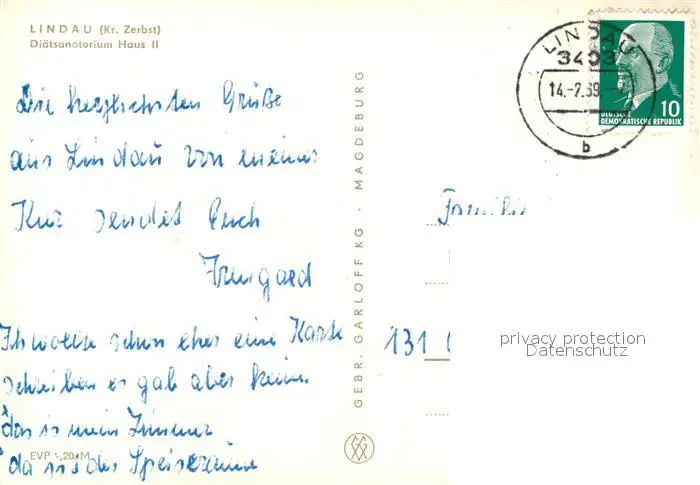 LINDAU (Kr. Zerbst)
Diätsanatorium Haus II
Die herzlichsten Grüße
aus Lindau von meiner
Kur sendet Euch
Irmgard
Ich wollte schon eher eine Karte
schreiben es gab aber keine.
das is mein Zimmer
da is der Speiseraum
EVP -,20 M
GEBR. GARLOFF KG · MAGDEBURG
LINDAU
3403
14.-7.69.-
b
DEUTSCHE
DEMOKRATISCHE REPUBLIK
10
Familie
131
privacy protection
Datenschutz